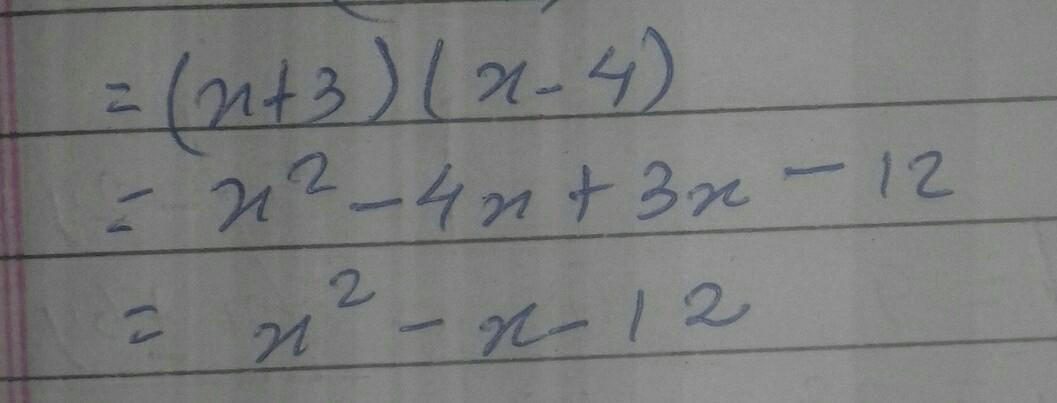 = (x+3)(x-4)
= x² - 4x + 3x - 12
= x² - x - 12